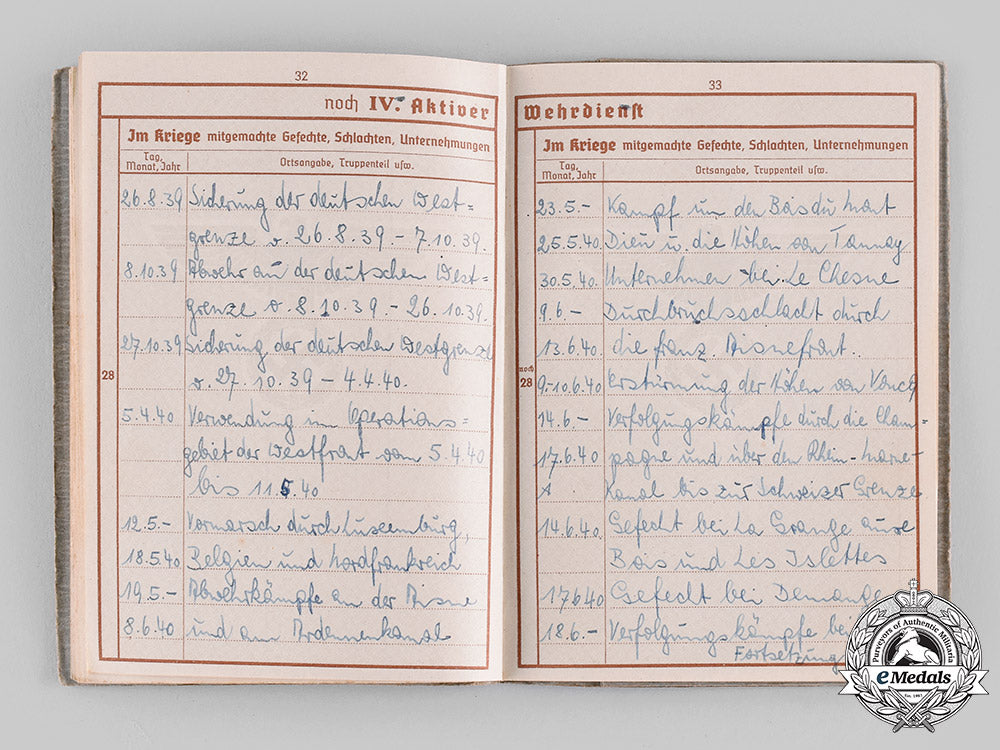 32
noch IV. Aktiver
Im Kriege mitgemachte Gefechte, Schlachten, Unternehmungen
Tag, Monat, Jahr
Ortsangabe, Truppenteil usw.
28
26.8.39 Sicherung der deutschen West=
grenze v. 26.8.39.- 7.10.39.
8.10.39 Abwehr an der deutschen West-
grenze v. 8.10.39 - 26.10.39.
27.10.39 Sicherung der deutschen Westgrenze
v. 27.10.39 - 4.4.40.
5.4.40 Verwendung im Operations=
gebiet der Westfront vom 5.4.40
bis 11.5.40
12.5.- Vormarsch durch Luxemburg,
18.5.40 Belgien und Nordfrankreich
19.5.- Abwehrkämpfe an der Aisne
8.6.40 und am Ardennenkanal
33
Wehrdienst
Im Kriege mitgemachte Gefechte, Schlachten, Unternehmungen
Tag, Monat, Jahr
Ortsangabe, Truppenteil usw.
noch 28
23.5.- Kampf um den Bois du Mont
25.5.40. Dieu u. die Höhen von Tannay
30.5.40. Unternehmen bei Le Chesne
9.6.- Durchbruchsschlacht durch
13.6.40. die franz. Aisnefront.
9.-10.6.40 Erstürmung der Höhen von Voncq
14.6.- Verfolgungskämpfe durch die Cham=
17.6.40 pagne und über den Rhein-Marne-
Kanal bis zur Schweizer Grenze
14.6.40. Gefecht bei La Grange aux
Bois und Les Islettes
17.6.40 Gefecht bei Demange
18.6.- Verfolgungskämpfe bei
Fortsetzung
Purveyors of Authentic Militaria
eMedals